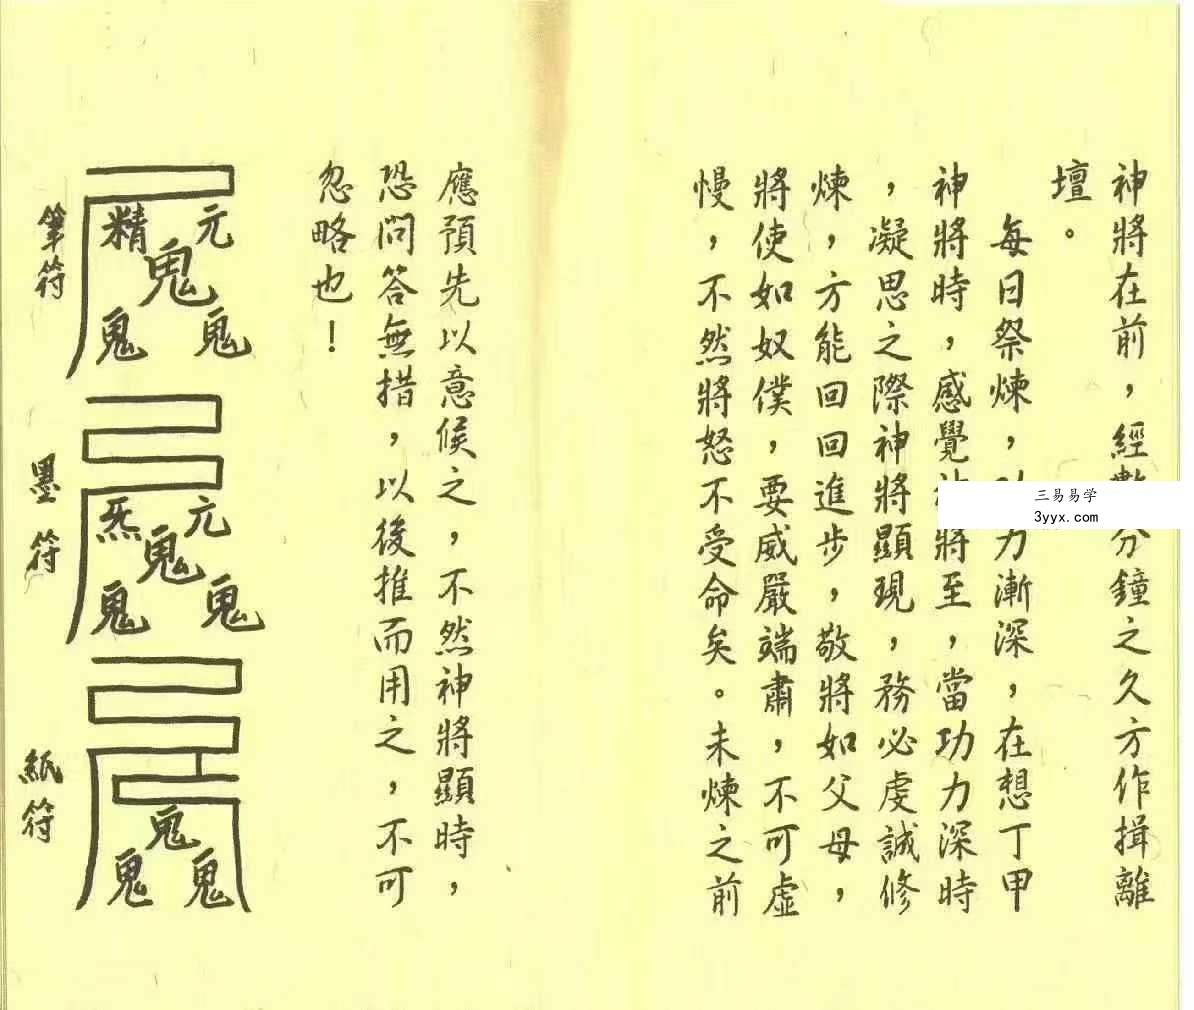 神將在前，經數分鐘之久方作揖離
壇。
每日祭煉，力漸深，在想丁甲
神將時，感覺將至，當功力深時
，凝思之際神將顯現，務必虔誠修
煉，方能回回進步，敬將如父母，
將使如奴僕，要威嚴端肅，不可虛
慢，不然將怒不受命矣。未煉之前
應預先以意候之，不然神將顯時，
恐問答無措，以後推而用之，不可
忽略也！
筆符
精 元
鬼
鬼 鬼
墨符
炁 元
鬼
鬼 鬼
紙符
鬼
鬼 鬼
三易易学
3yyx.com